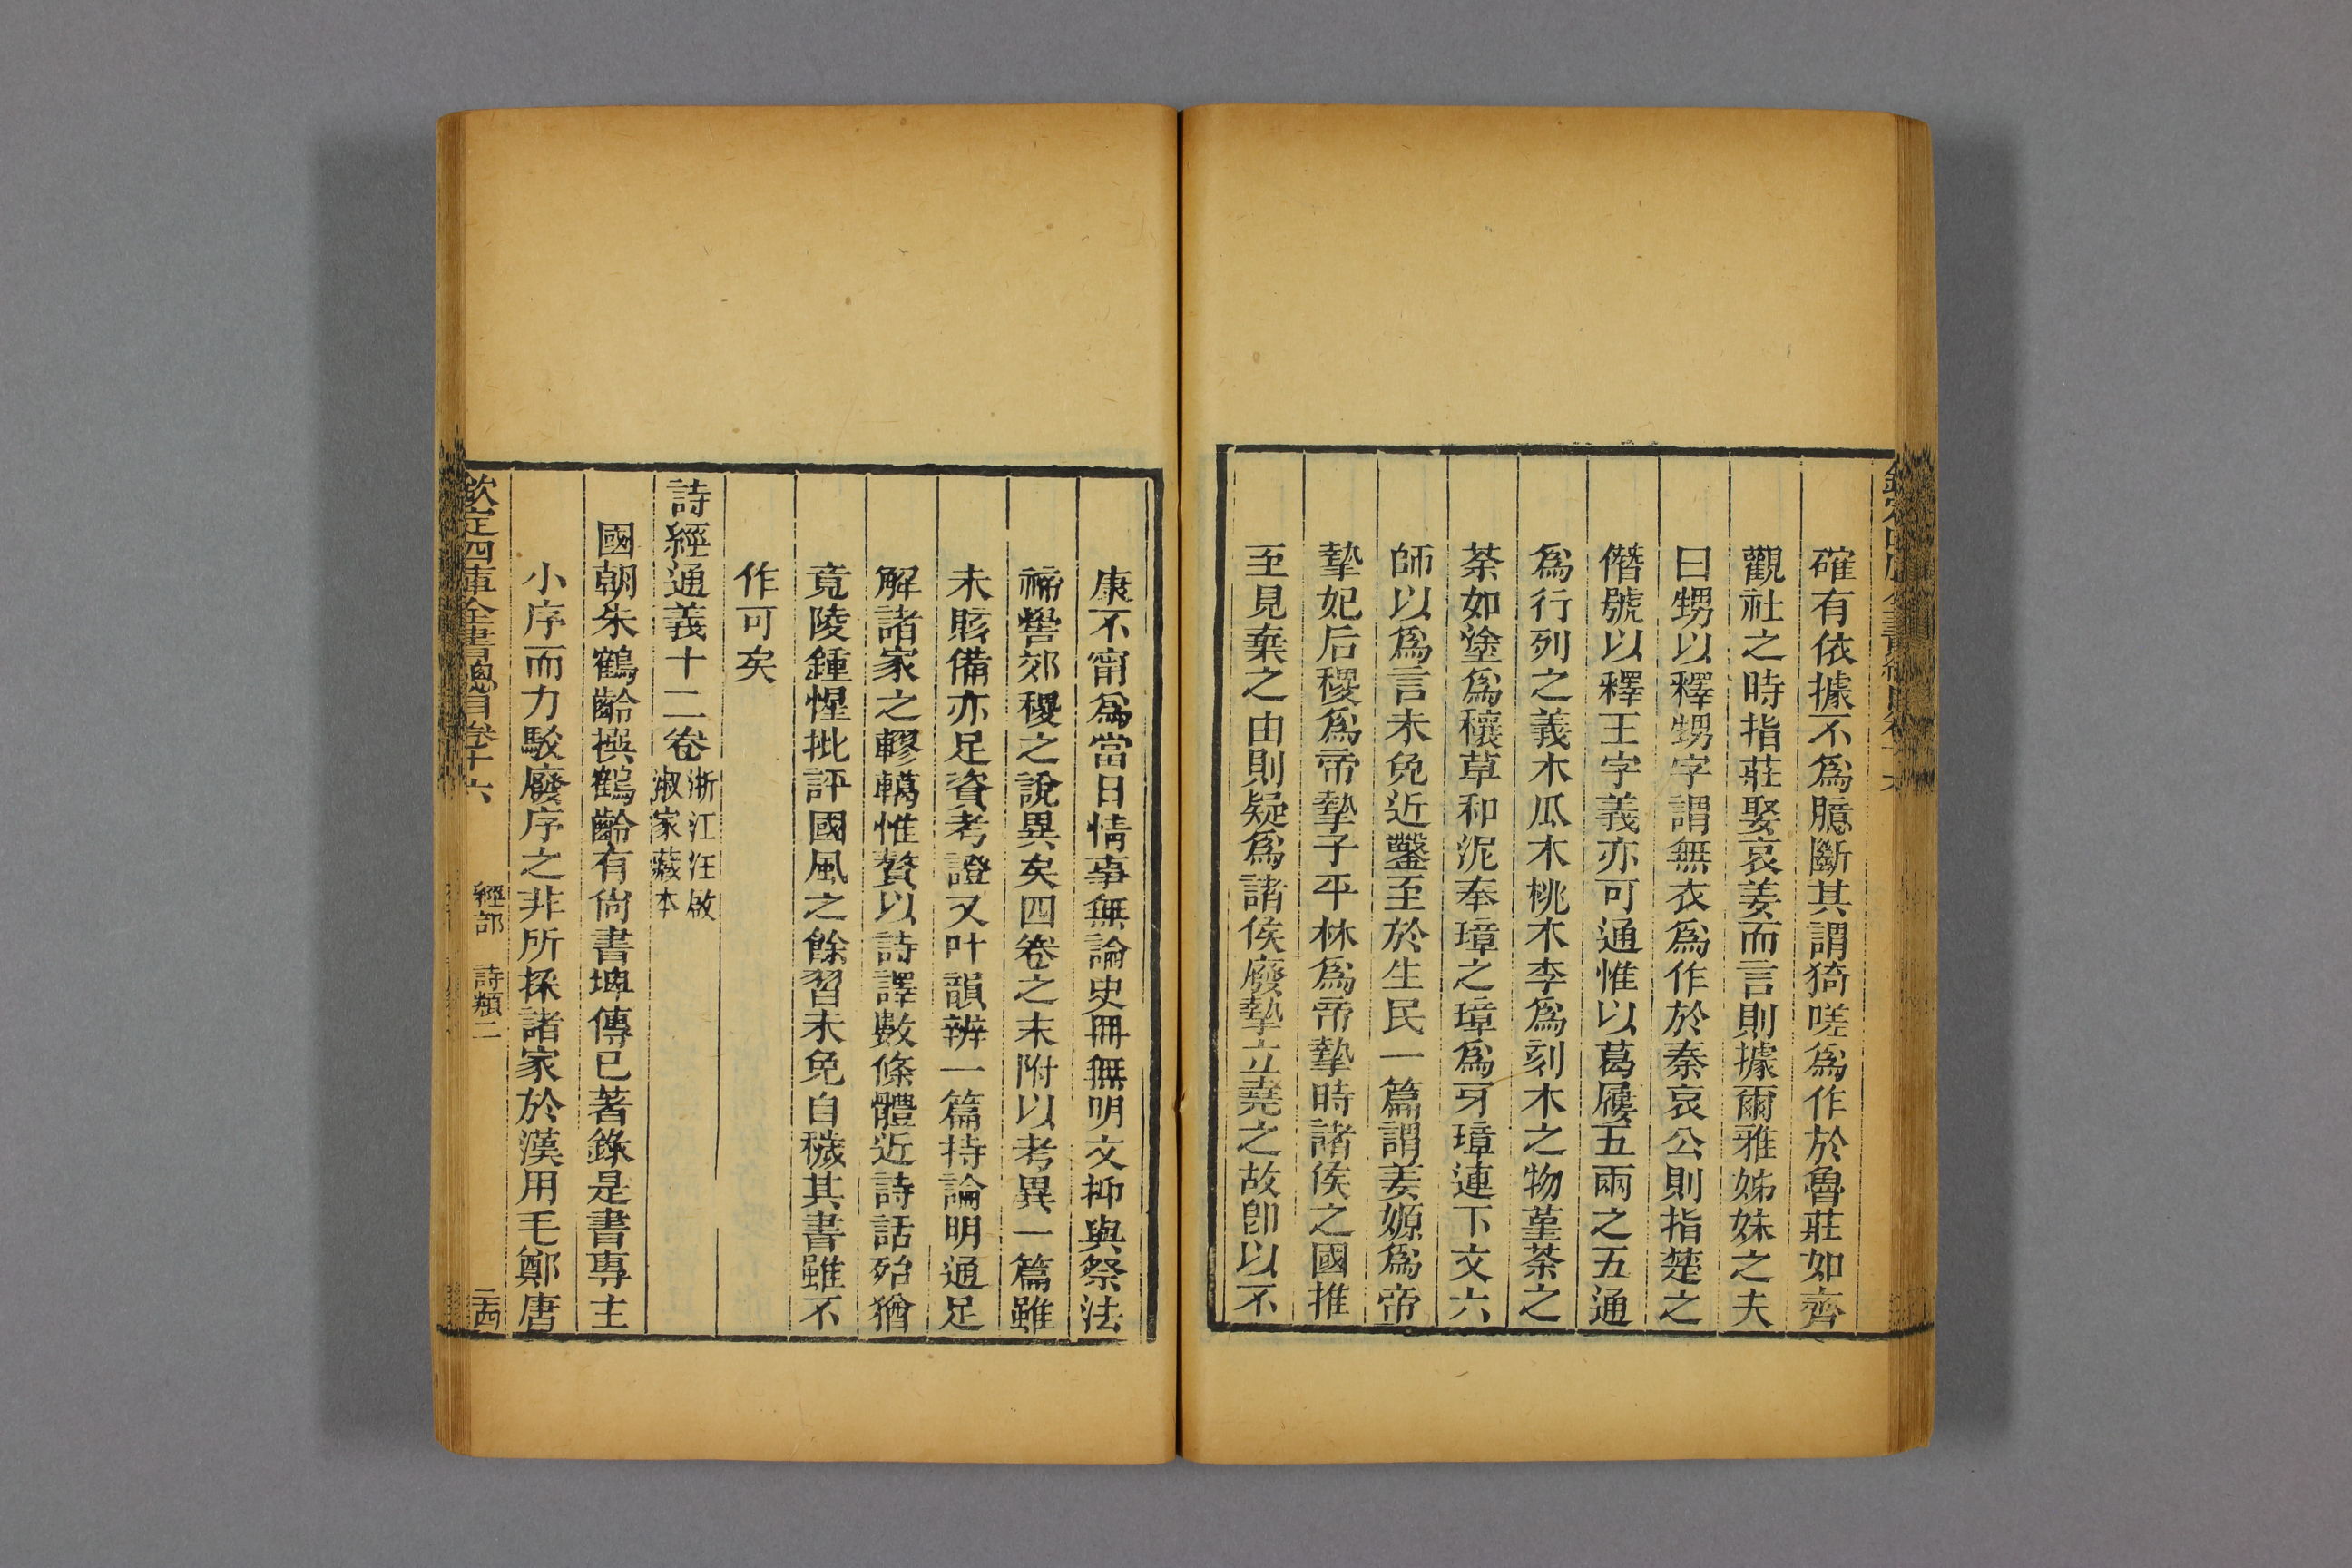 確有依據不爲臆斷其謂猗嗟爲作於魯莊如齊
觀社之時指莊娶哀姜而言則據爾雅姊妹之夫
曰甥以釋甥字謂無衣爲作於秦哀公則指楚之
僭號以釋王字義亦可通惟以葛屨五兩之五通
爲行列之義木瓜木桃木李爲刻木之物堇荼之
荼如塗爲穰草和泥奉璋之璋爲牙璋連下文六
師以爲言未免近鑿至於生民一篇謂姜嫄爲帝
摯妃后稷爲帝摯子平林爲帝摯時諸侯之國推
至見棄之由則疑爲諸侯廢摯立堯之故卽以不
康不甯爲當日情事無論史冊無明文抑與祭法
禘嚳郊稷之說異矣四卷之末附以考異一篇雖
未賅備亦足資考證又叶韻辨一篇持論明通足
解諸家之轇轕惟贅以詩譯數條體近詩話殆猶
竟陵鍾惺批評國風之餘習未免自穢其書雖不
作可矣
詩經通義十二卷浙江汪啟
淑家藏本
國朝朱鶴齡撰鶴齡有尙書埤傳已著錄是書專主
小序而力駁廢序之非所採諸家於漢用毛鄭唐
欽定四庫全書總目卷十六 經部 詩類二 二四